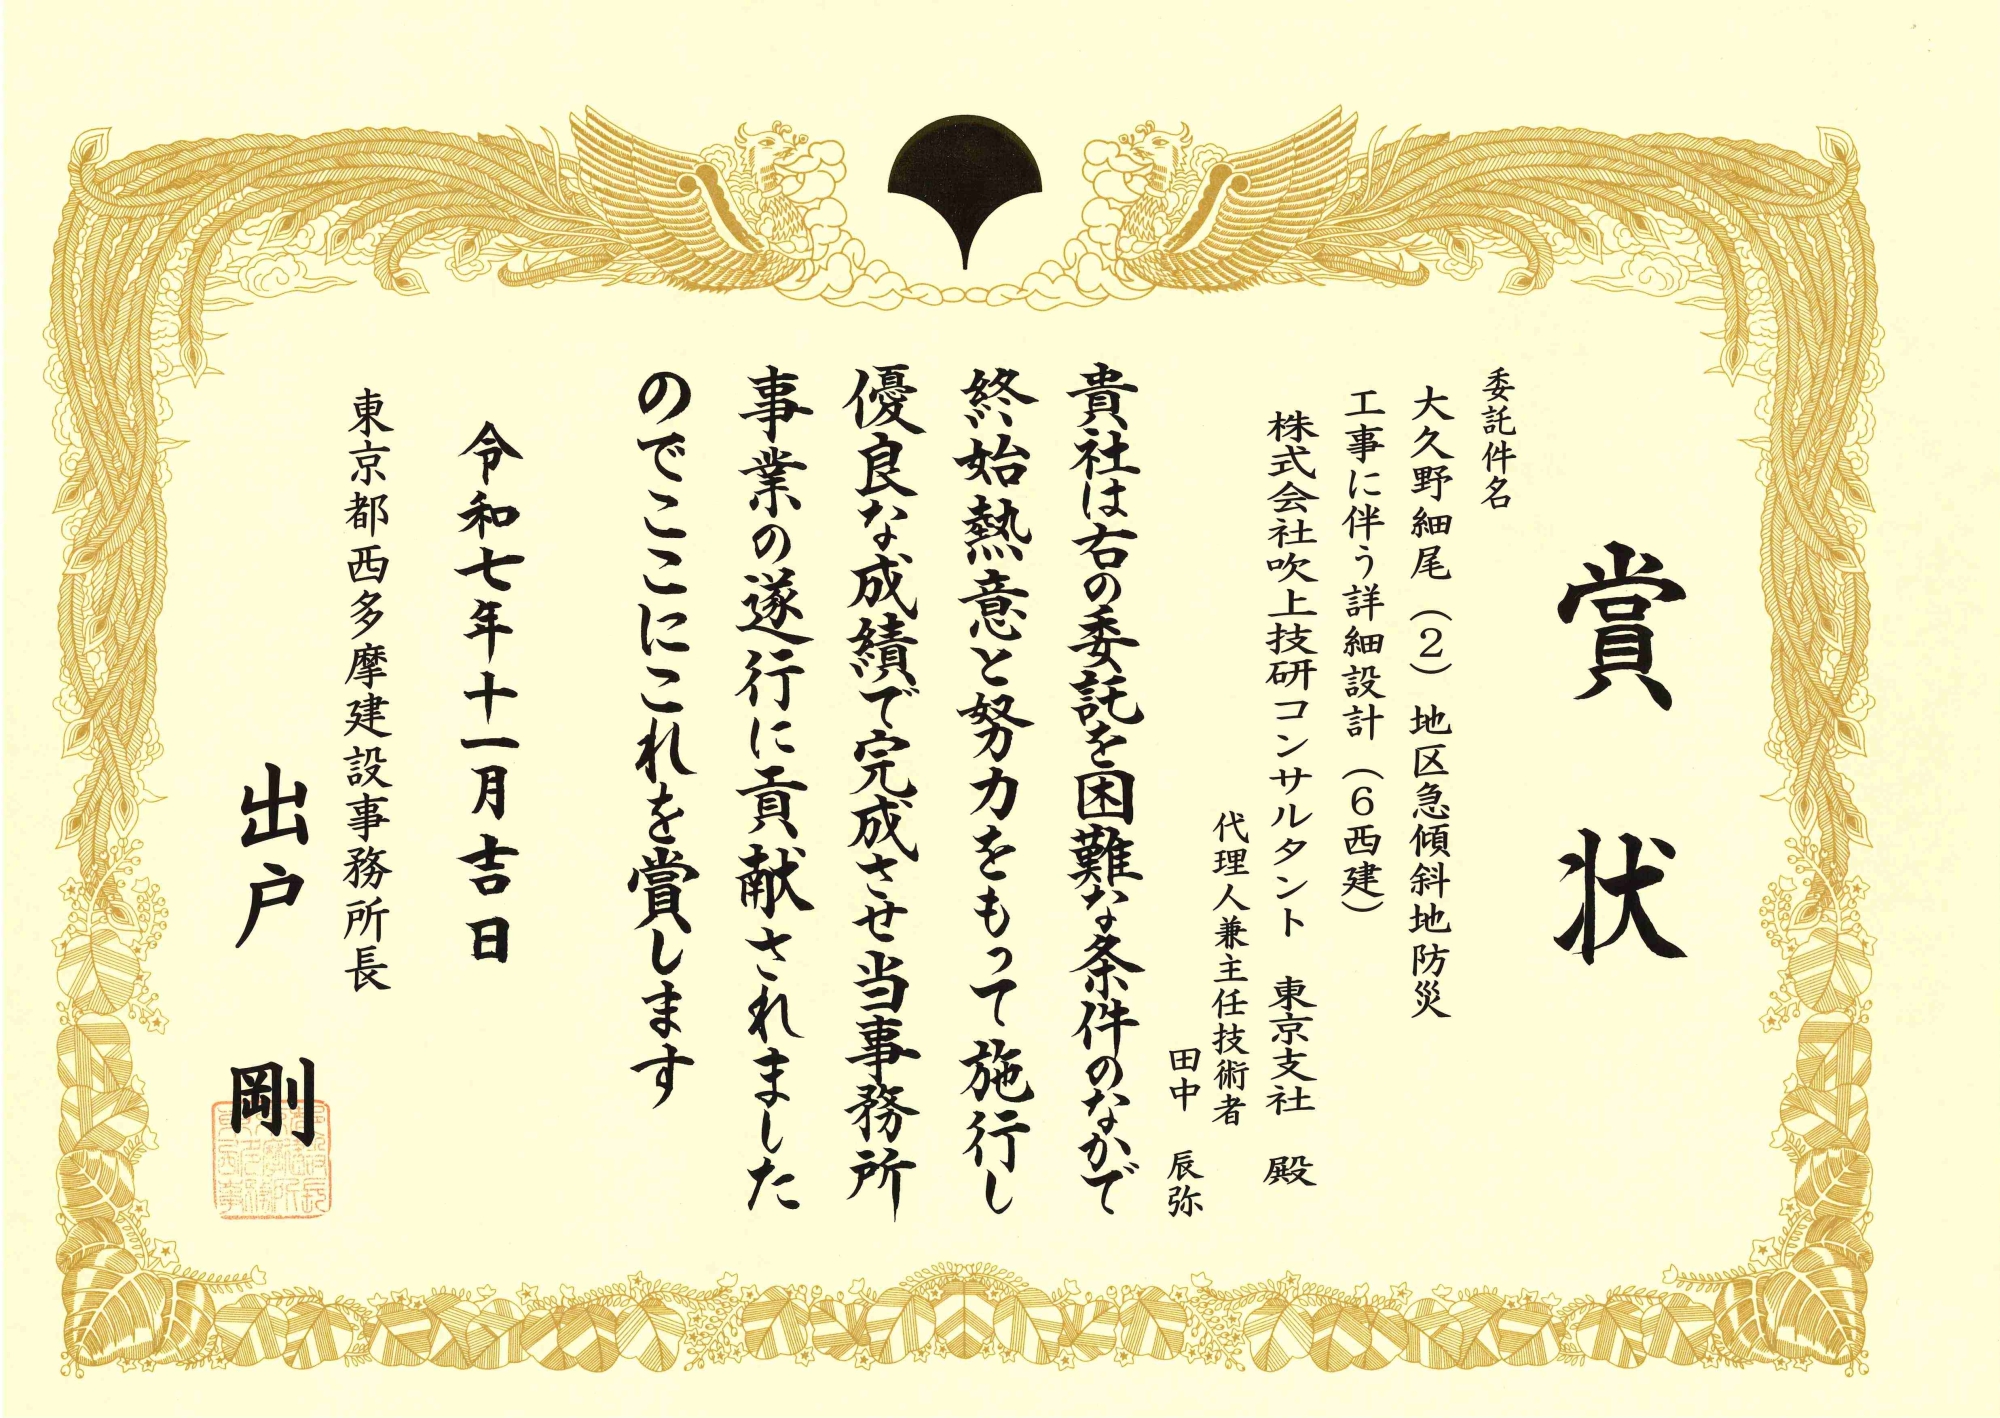 賞状
委託件名
大久野細尾（2）地区急傾斜地防災
工事に伴う詳細設計（6西建）
株式会社吹上技研コンサルタント　東京支社　殿
代理人兼主任技術者
田中　辰弥
貴社は右の委託を困難な条件のなかで
終始熱意と努力をもって施行し
優良な成績で完成させ当事務所
事業の遂行に貢献されました
のでここにこれを賞します
令和七年十一月吉日
東京都西多摩建設事務所長
出戸　剛